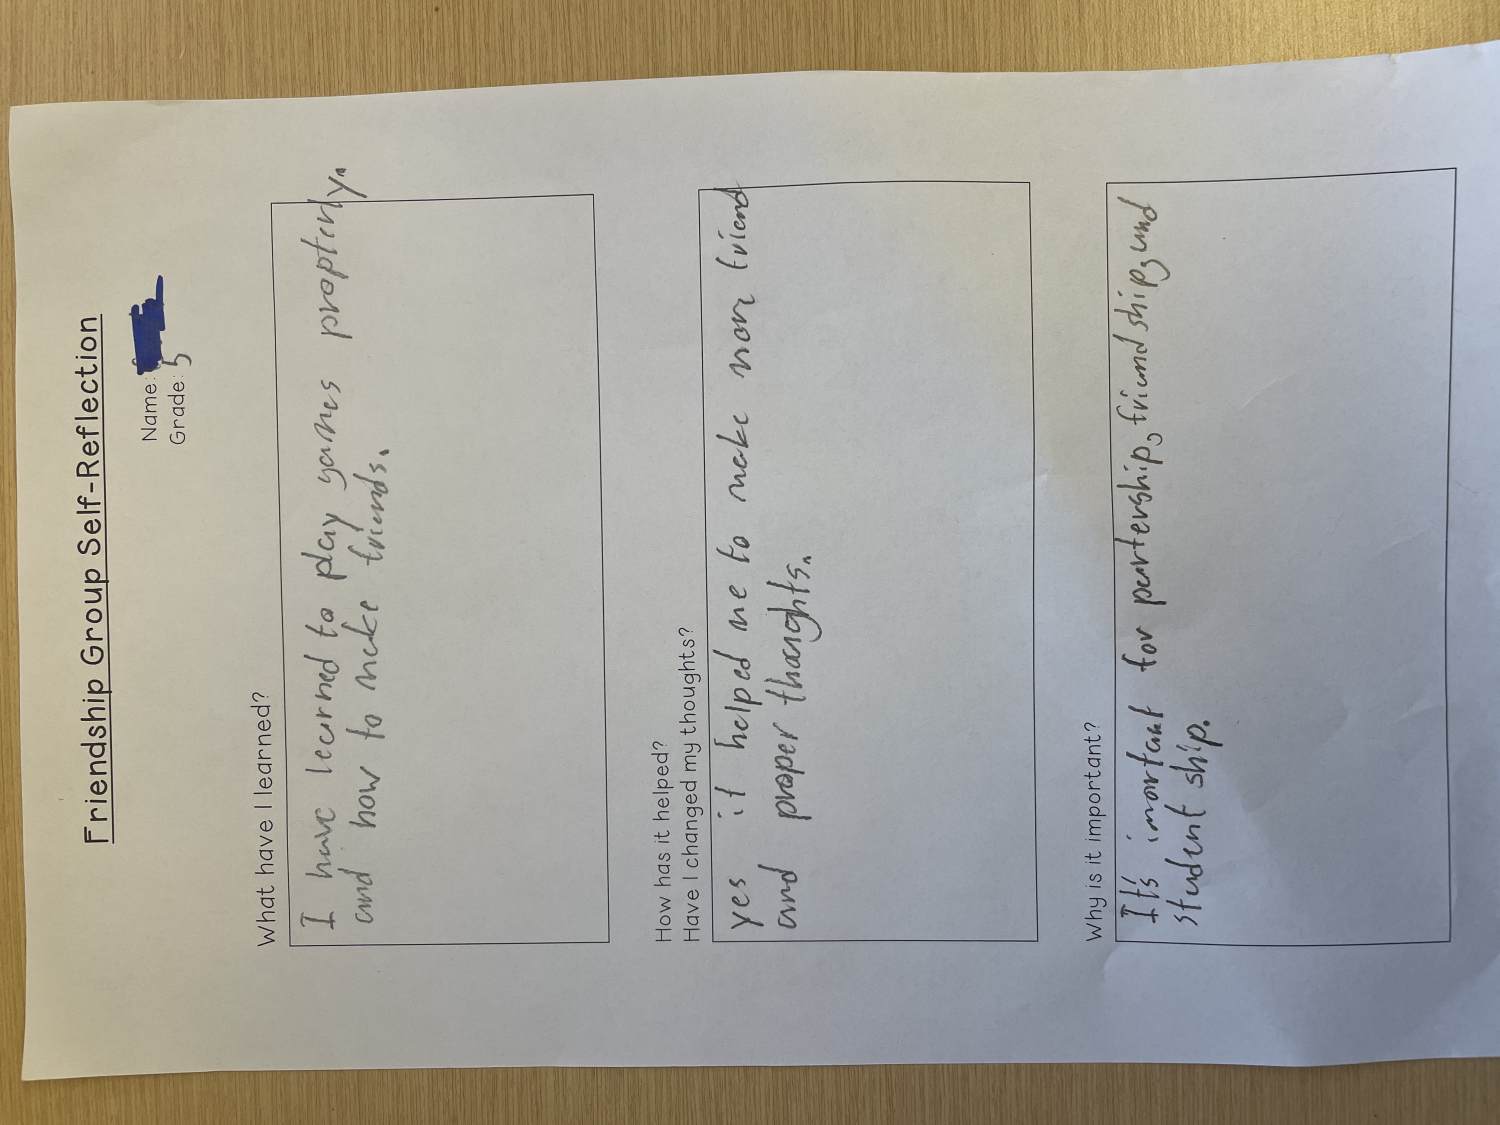 Friendship Group Self-Reflection
Name:
Grade: 5
What have I learned?
I have learned to play games propterly.
and how to make friends.
How has it helped?
Have I changed my thoughts?
yes it helped me to make mor friend
and proper thoughts.
Why is it important?
It's imortant for partership, friendship, and
student ship.